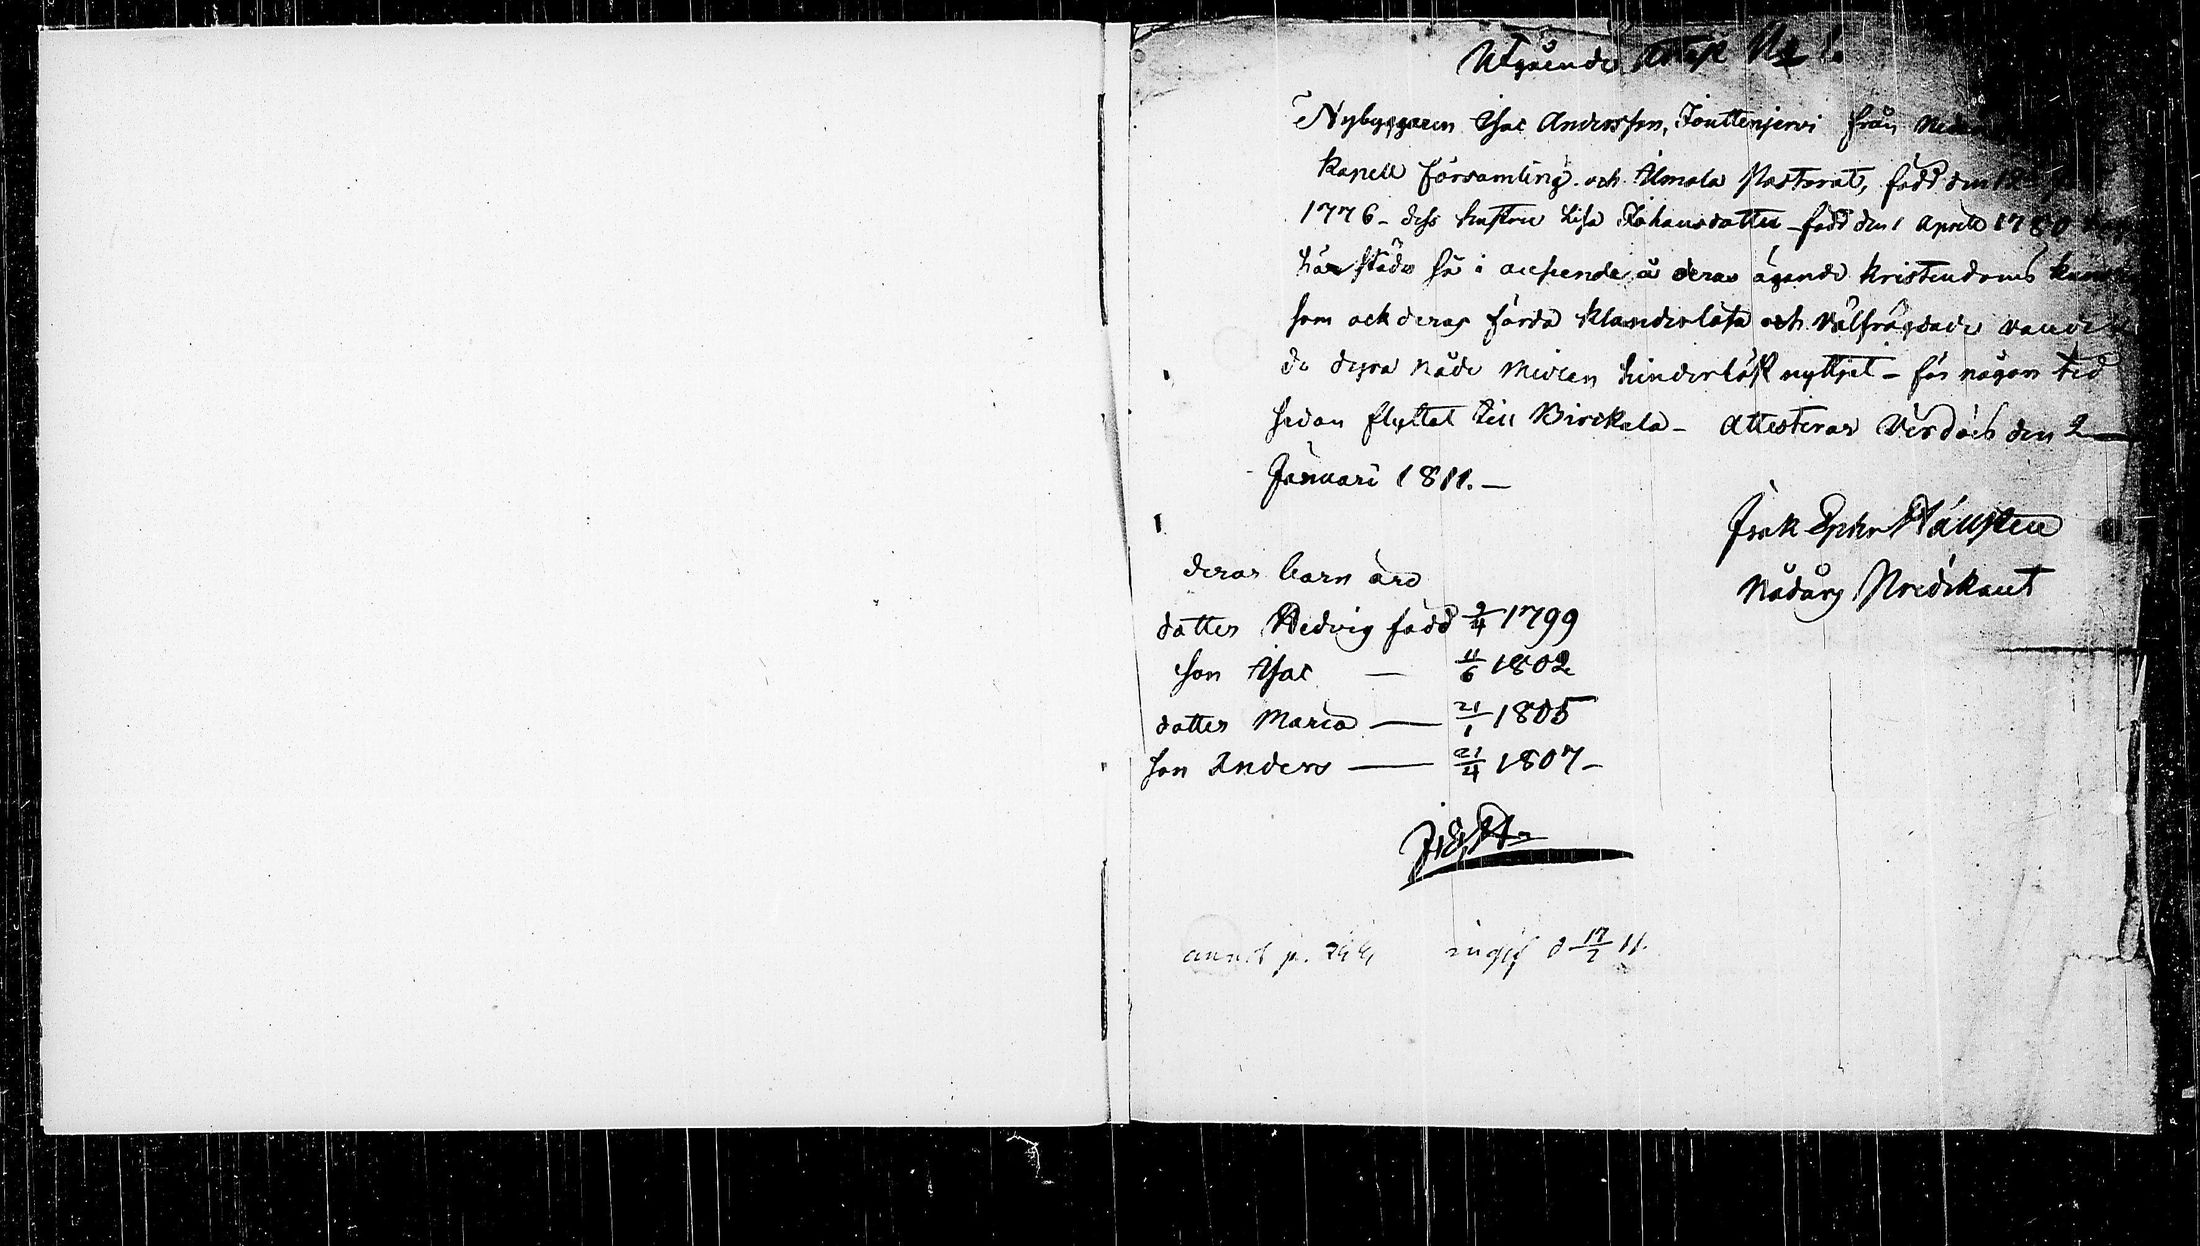 Utgående Attest N: 1.
Nybyggaren Isac Andersson, Jouttenjervi från
Kapell församling och Ilmola Pastorat, född den
1776 - dess hustru Lisa Johansdotter - född den 1 April 1780
här städes så i anseende å deras ägande kristendoms
som ock deras förda klanderlösa och välfrägdade
de dyra nåde medlen hinderlöst nyttjat - för någon tid
sedan flyttat till Birckala - Attesterar Virdois den 2
Januari 1811. -
Isak Ephr Hällsten
Nådårs Predikant
deras barn äro
dotter Hedvig född 9/4 1799
son Isac — 11/6 1802
dotter Maria — 21/1 1805
son Anders — 21/4 1807 -
ingif d 17/2 11.